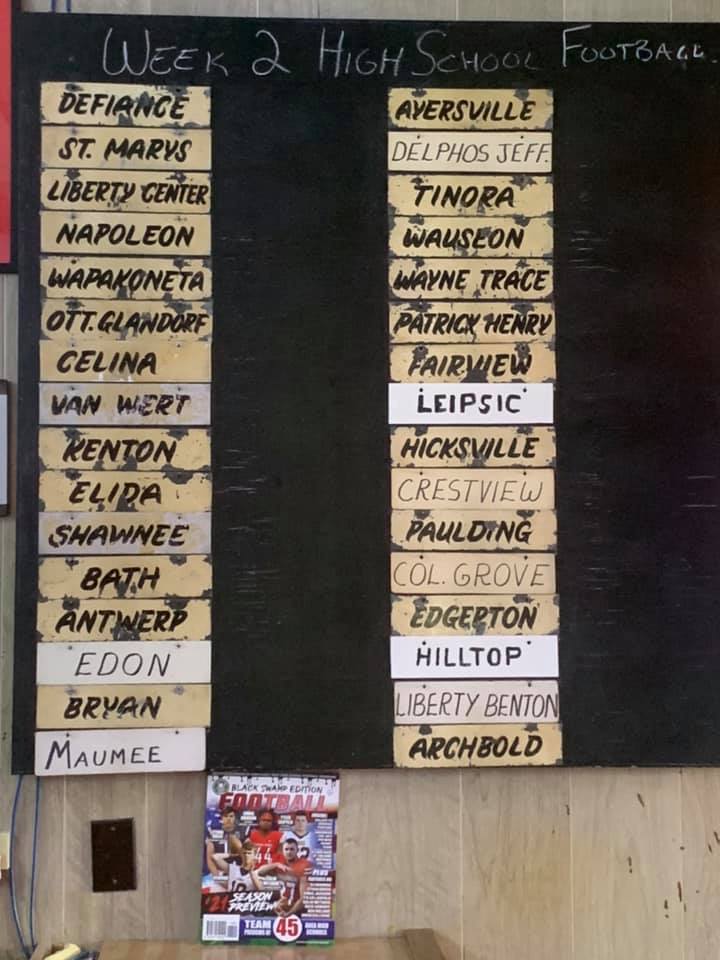 WEEK 2 HIGH SCHOOL FOOTBALL
DEFIANCE
ST. MARYS
LIBERTY CENTER
NAPOLEON
WAPAKONETA
OTT. GLANDORF
CELINA
VAN WERT
KENTON
ELIDA
SHAWNEE
BATH
ANTWERP
EDON
BRYAN
MAUMEE
AYERSVILLE
DELPHOS JEFF.
TINORA
WAUSEON
WAYNE TRACE
PATRICK HENRY
FAIRVIEW
LEIPSIC
HICKSVILLE
CRESTVIEW
PAULDING
COL. GROVE
EDGERTON
HILLTOP
LIBERTY BENTON
ARCHBOLD
BLACK SWAMP EDITION
FOOTBALL
44
PLUS
'21 SEASON
PREVIEW
TEAM
45